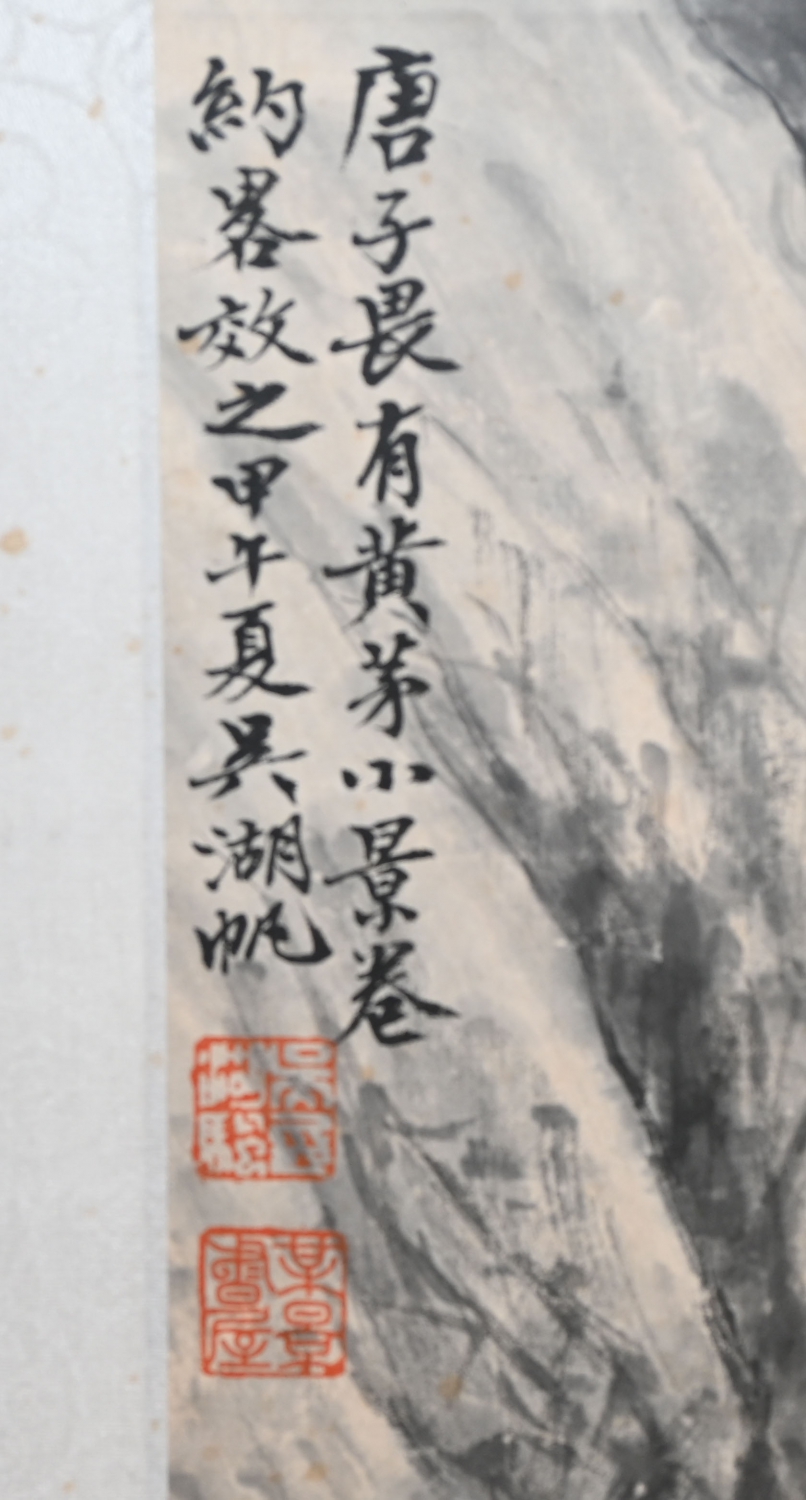 唐子畏有黃茅小景卷
約畧效之甲午夏吳湖帆
某景書屋